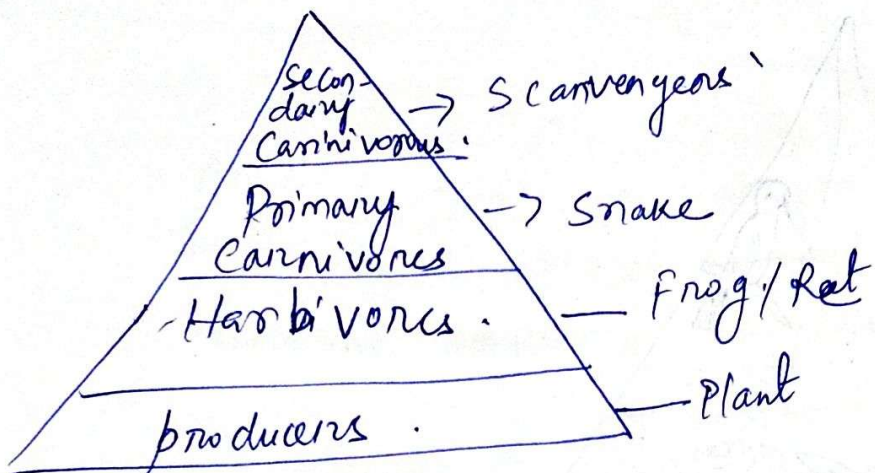 Secon-
dary
Carinivorous. -> Scanvengeors
Primary
Carnivores -> Snake
Harbivores. Frog/Rat
producers. Plant